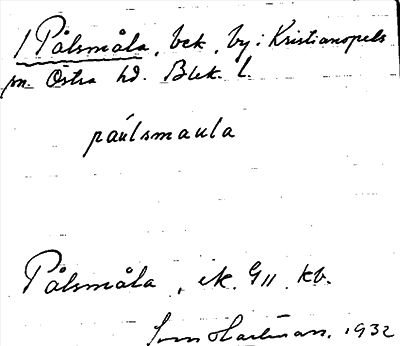 1 Pålsmåla, bek., by: Kristianopels
sn. Östra hd. Blek. l.
páulsmaula
Pålsmåla, ek. G11 kb.
Sven Hartman. 1932